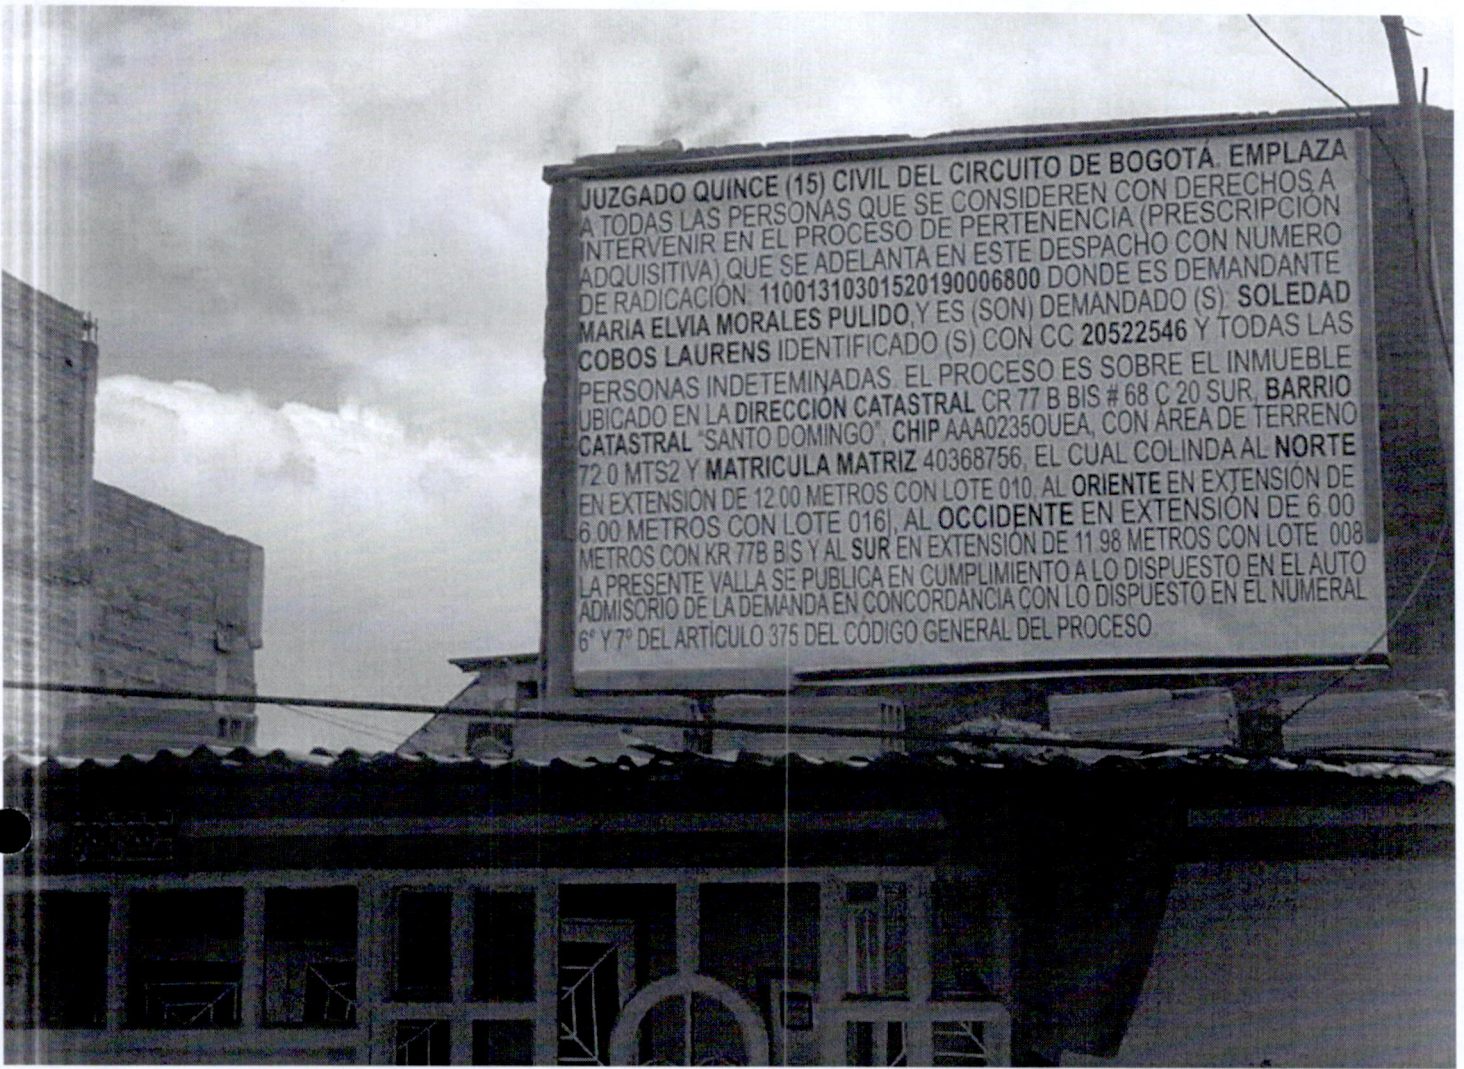 JUZGADO QUINCE (15) CIVIL DEL CIRCUITO DE BOGOTÁ. EMPLAZA
A TODAS LAS PERSONAS QUE SE CONSIDEREN CON DERECHOS A
INTERVENIR EN EL PROCESO DE PERTENENCIA (PRESCRIPCIÓN
ADQUISITIVA) QUE SE ADELANTA EN ESTE DESPACHO CON NUMERO
DE RADICACIÓN: 11001310301520190006800 DONDE ES DEMANDANTE
MARIA ELVIA MORALES PULIDO,Y ES (SON) DEMANDADO (S): SOLEDAD
COBOS LAURENS IDENTIFICADO (S) CON CC 20522546 Y TODAS LAS
PERSONAS INDETEMINADAS. EL PROCESO ES SOBRE EL INMUEBLE
UBICADO EN LA DIRECCIÓN CATASTRAL CR 77 B BIS # 68 C 20 SUR, BARRIO
CATASTRAL "SANTO DOMINGO", CHIP AAA0235OUEA, CON ÁREA DE TERRENO
72.0 MTS2 Y MATRICULA MATRIZ 40368756, EL CUAL COLINDA AL NORTE
EN EXTENSIÓN DE 12.00 METROS CON LOTE 010, AL ORIENTE EN EXTENSIÓN DE
6.00 METROS CON LOTE 016|, AL OCCIDENTE EN EXTENSIÓN DE 6.00
METROS CON KR 77B BIS Y AL SUR EN EXTENSIÓN DE 11.98 METROS CON LOTE 008
LA PRESENTE VALLA SE PUBLICA EN CUMPLIMIENTO A LO DISPUESTO EN EL AUTO
ADMISORIO DE LA DEMANDA EN CONCORDANCIA CON LO DISPUESTO EN EL NUMERAL
6º Y 7º DEL ARTÍCULO 375 DEL CÓDIGO GENERAL DEL PROCESO